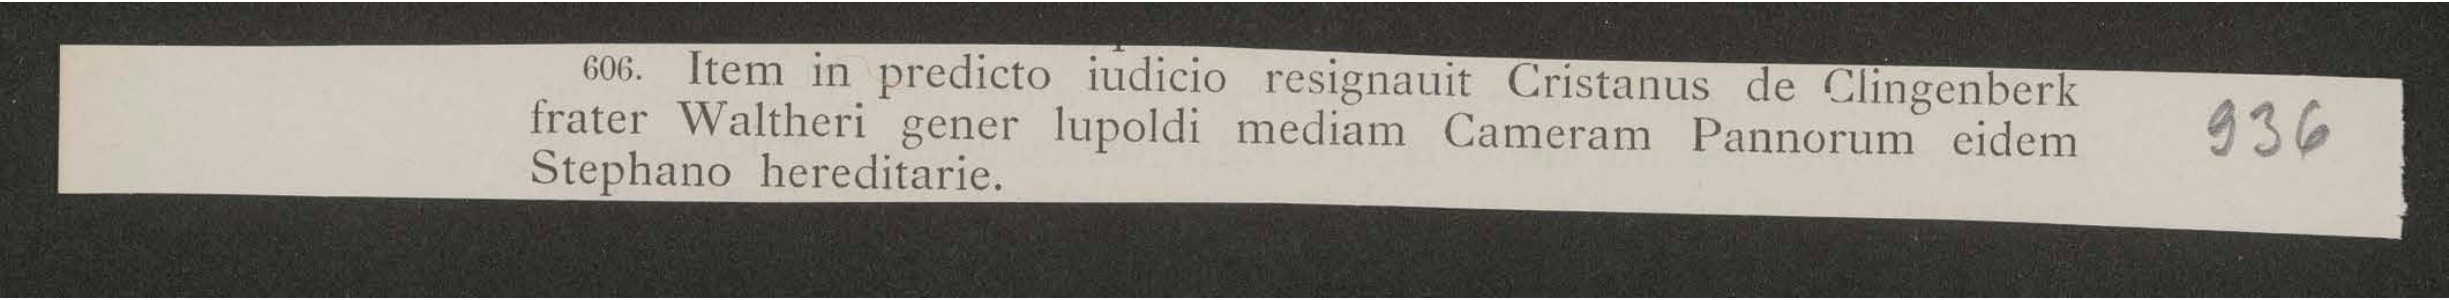 606. Item in predicto iudicio resignauit Cristanus de Clingenberk
frater Waltheri gener lupoldi mediam Cameram Pannorum eidem
Stephano hereditarie.
936